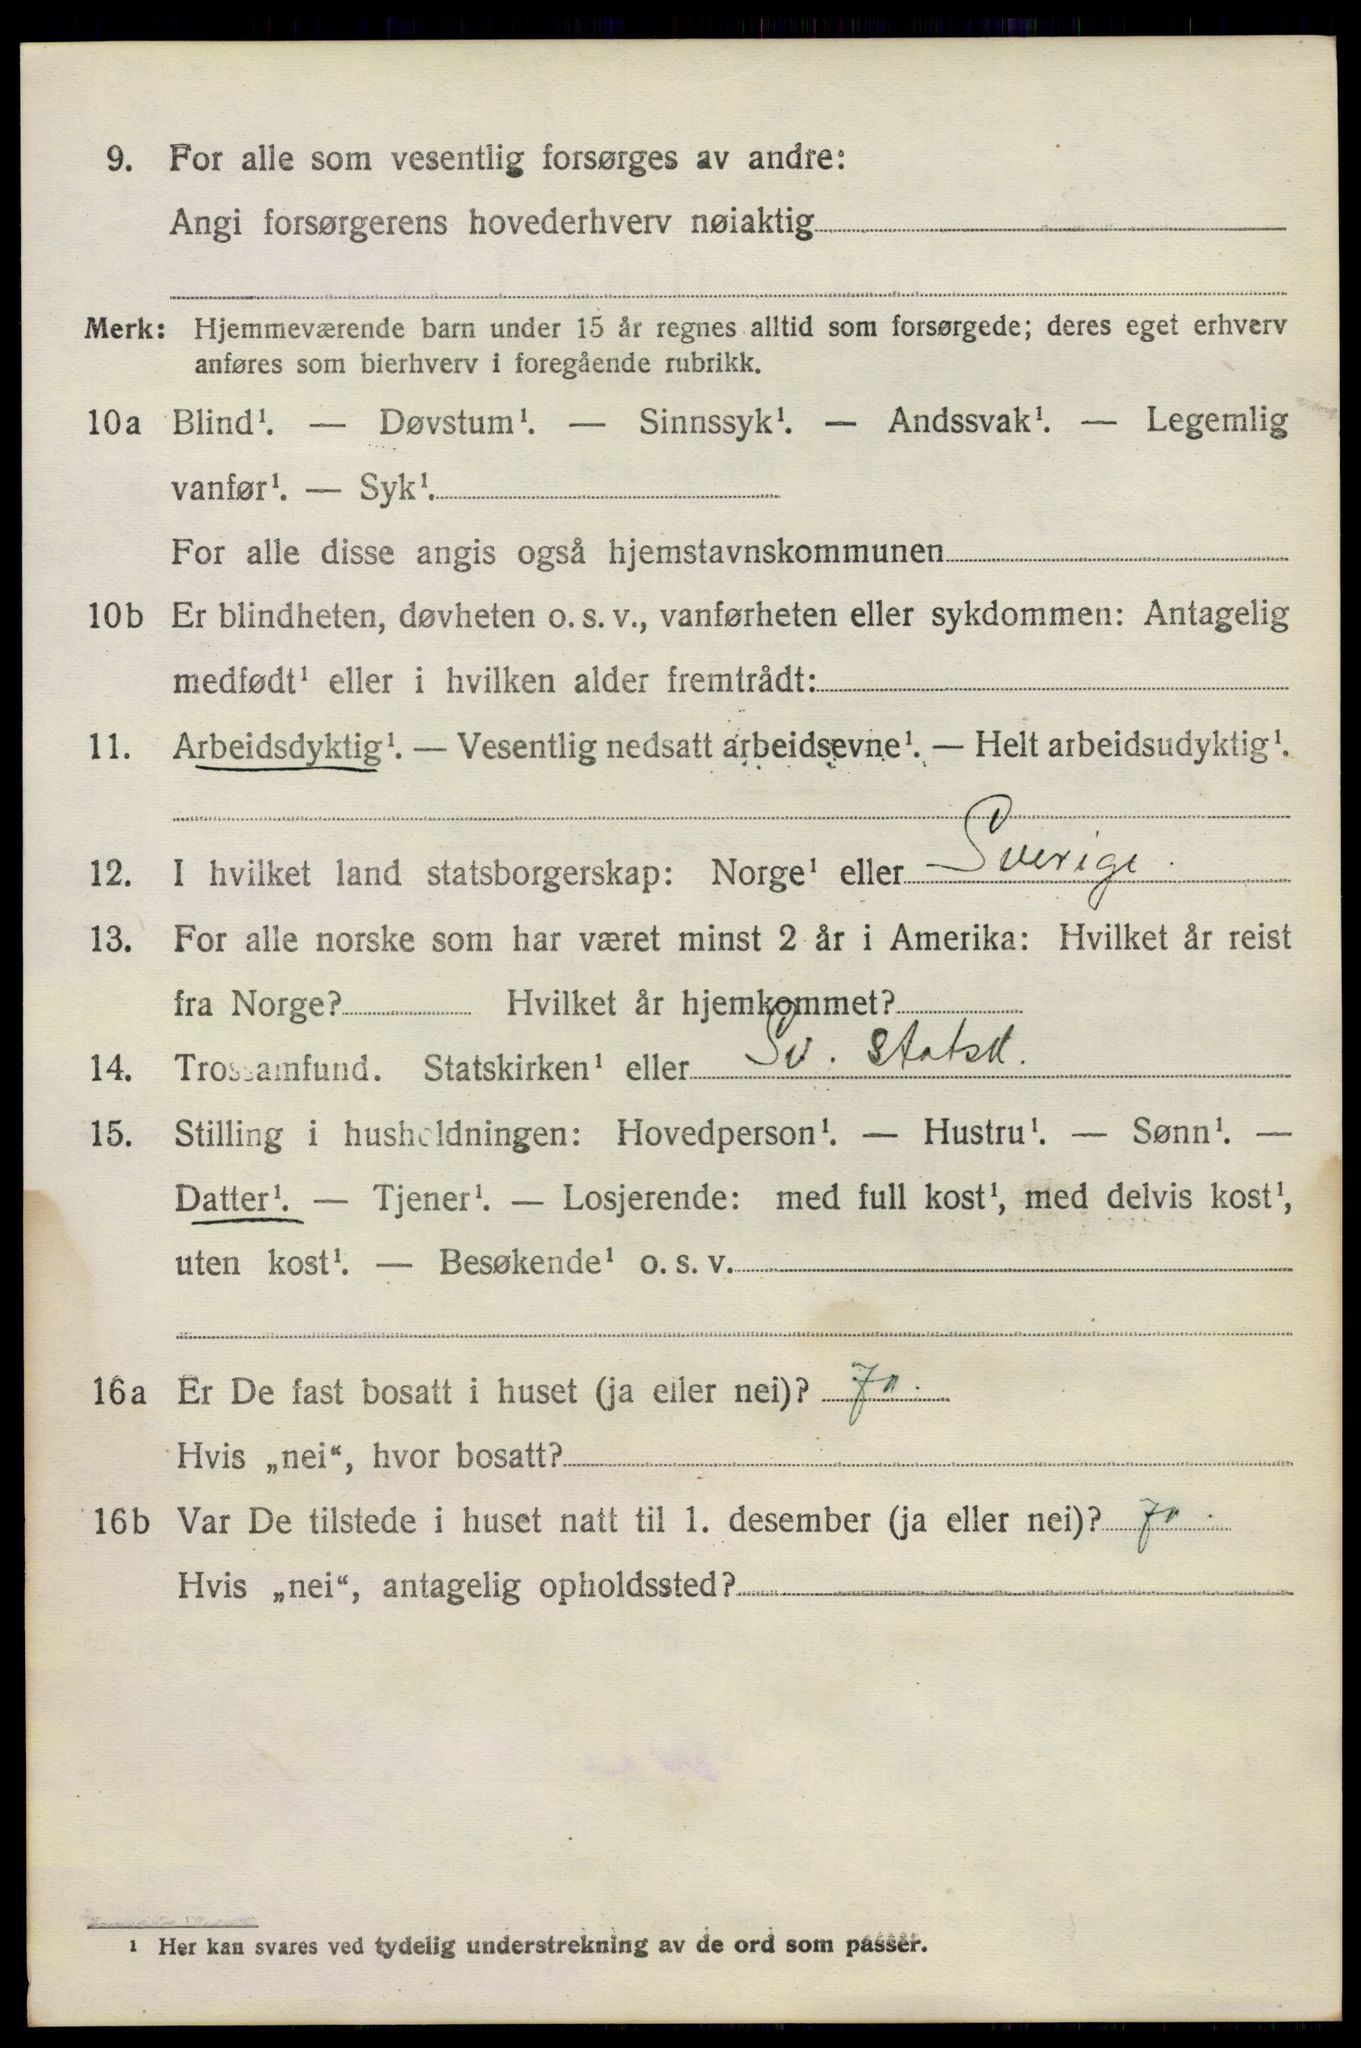 9. For alle som vesentlig forsørges av andre:
Angi forsørgerens hovederhverv nøiaktig
Merk: Hjemmeværende barn under 15 år regnes alltid som forsørgede; deres eget erhverv
anføres som bierhverv i foregående rubrikk.
10a Blind¹. — Døvstum¹. — Sinnssyk¹. — Andssvak¹. — Legemlig
vanfør¹. — Syk¹.
For alle disse angis også hjemstavnskommunen
10b Er blindheten, døvheten o. s. v., vanførheten eller sykdommen: Antagelig
medfødt¹ eller i hvilken alder fremtrådt:
11. Arbeidsdyktig¹. — Vesentlig nedsatt arbeidsevne¹. — Helt arbeidsudyktig¹.
12. I hvilket land statsborgerskap: Norge¹ eller Sverige.
13. For alle norske som har været minst 2 år i Amerika: Hvilket år reist
fra Norge? Hvilket år hjemkommet?
14. Trossamfund. Statskirken¹ eller Sv.
15. Stilling i husholdningen: Hovedperson¹. — Hustru¹. — Sønn¹. —
Datter¹. — Tjener¹. — Losjerende: med full kost¹, med delvis kost¹,
uten kost¹. — Besøkende¹ o. s. v.
16a Er De fast bosatt i huset (ja eller nei)? Ja.
Hvis „nei“, hvor bosatt?
16b Var De tilstede i huset natt til 1. desember (ja eller nei)? Ja.
Hvis „nei“, antagelig opholdssted?
¹ Her kan svares ved tydelig understrekning av de ord som passer.